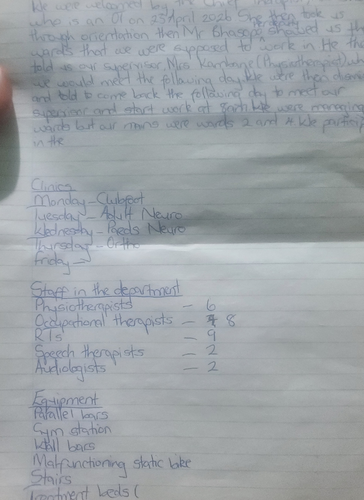 We were welcomed by the
who is an OT on 23rd April 2026 She then took us
through orientation then Mr showed us the
wards that we were supposed to work in He then
told us our supervisor Mrs (Physiotherapist) who
we would meet the following day. We were then
and told to come back the following day to meet our
supervisor and start work at We were managing
wards but our mains were wards 2 and 4 We
in the
Clinics
Monday - Clubfoot
Tuesday - Adult Neuro
Wednesday - Paeds Neuro
Thursday - Ortho
Friday -
Staff in the department
Physiotherapists - 6
Occupational therapists - 8
RTs - 9
Speech therapists - 2
Audiologists - 2
Equipment
Parallel bars
Gym station
Wall bars
Malfunctioning static bike
Stairs
Treatment beds (